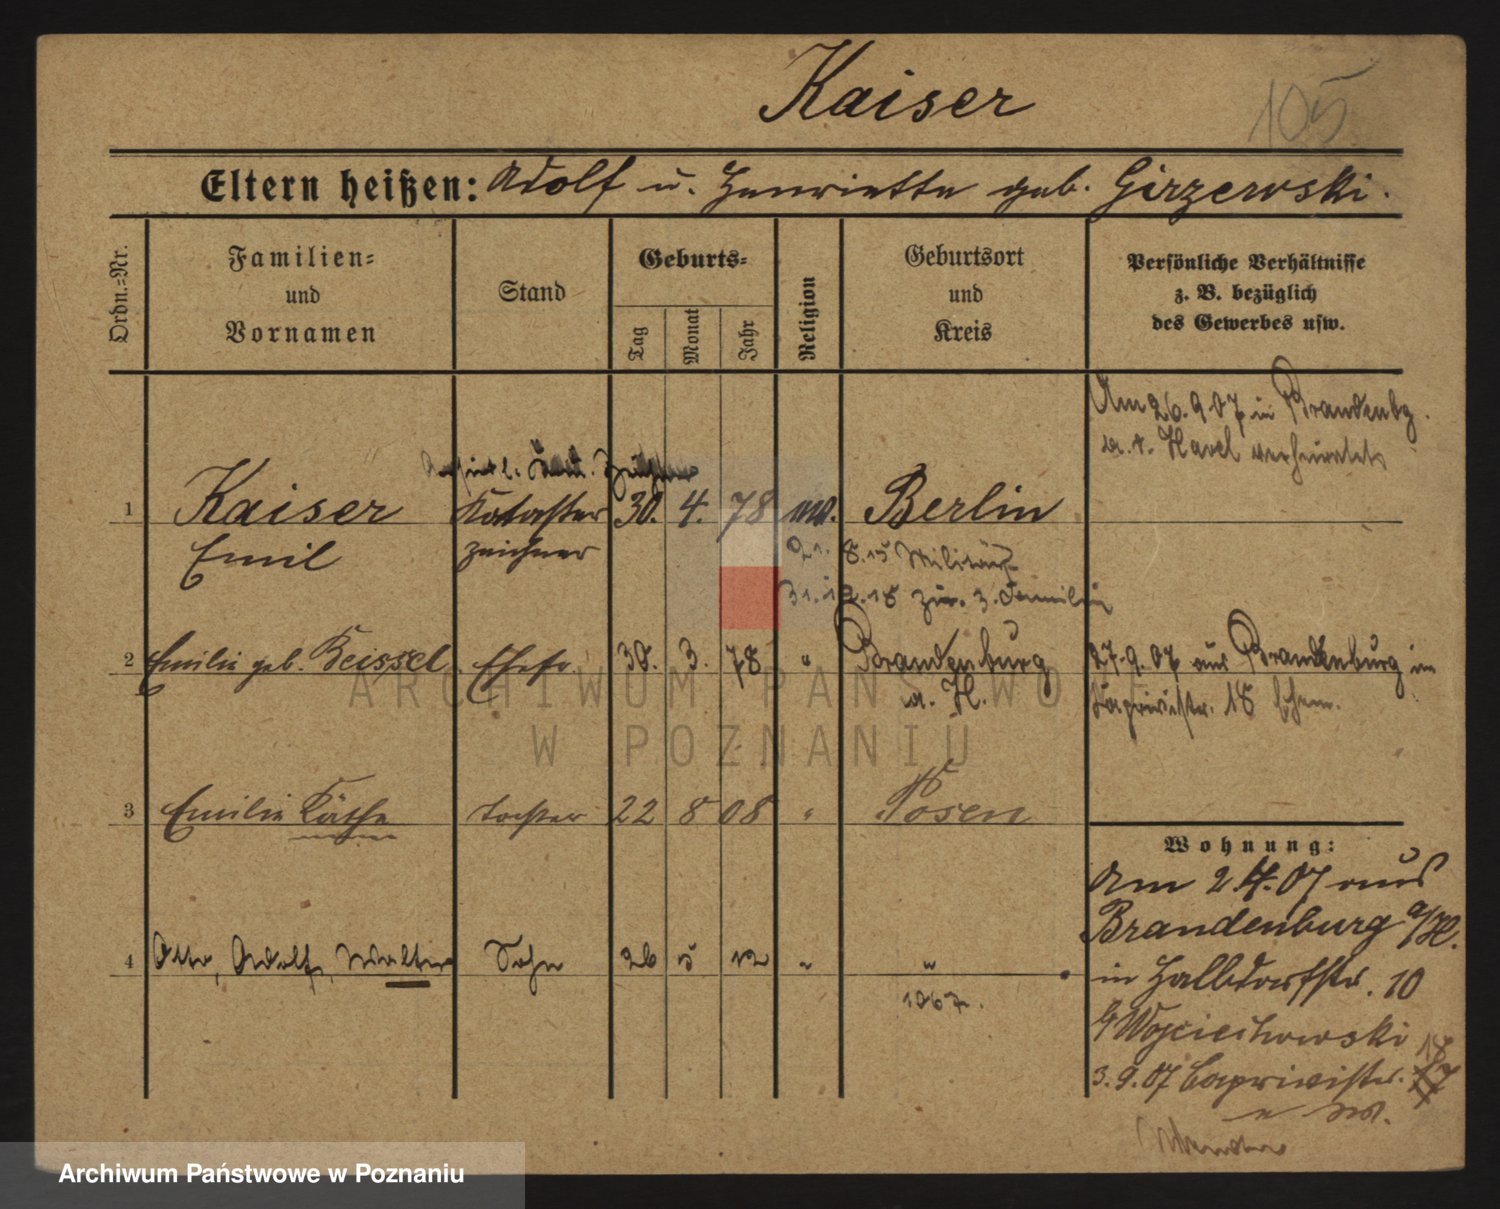 Kaiser
105
Eltern heißen: Adolf u. Henriette geb. Girzewski.
Ordn.=Nr.
Familien=
und
Vornamen
Stand
Geburts=
Tag
Monat
Jahr
Religion
Geburtsort
und
Kreis
Persönliche Verhältnisse
z. B. bezüglich
des Gewerbes usw.
Am 26.9.07 in Brandenbg.
a. d. Havel verheiratet
1 Kaiser Kataster 30. 4. 78 ev. Berlin
Emil zeichner
21. 8.15 Militär
31.12.18 zur. z. Familie
2 Emilie geb. Beissel Ehefr 30. 3. 78 " Brandenburg
a. H.
27.9.07 aus Brandenburg in
Caprivistr. 18
3 Emilie Käthe Tochter 22 8 08 " Posen
Wohnung:
Am 2.4.07 aus
Brandenburg a/H.
in Halbdorfstr. 10
b/ Wojciechowski
3.9.07 Caprivistr. 18
4 Otto, Adolf, Walter Sohn 26 5 12 " "
1067.
ARCHIWUM PAŃSTWO
W POZNANIU
Archiwum Państwowe w Poznaniu